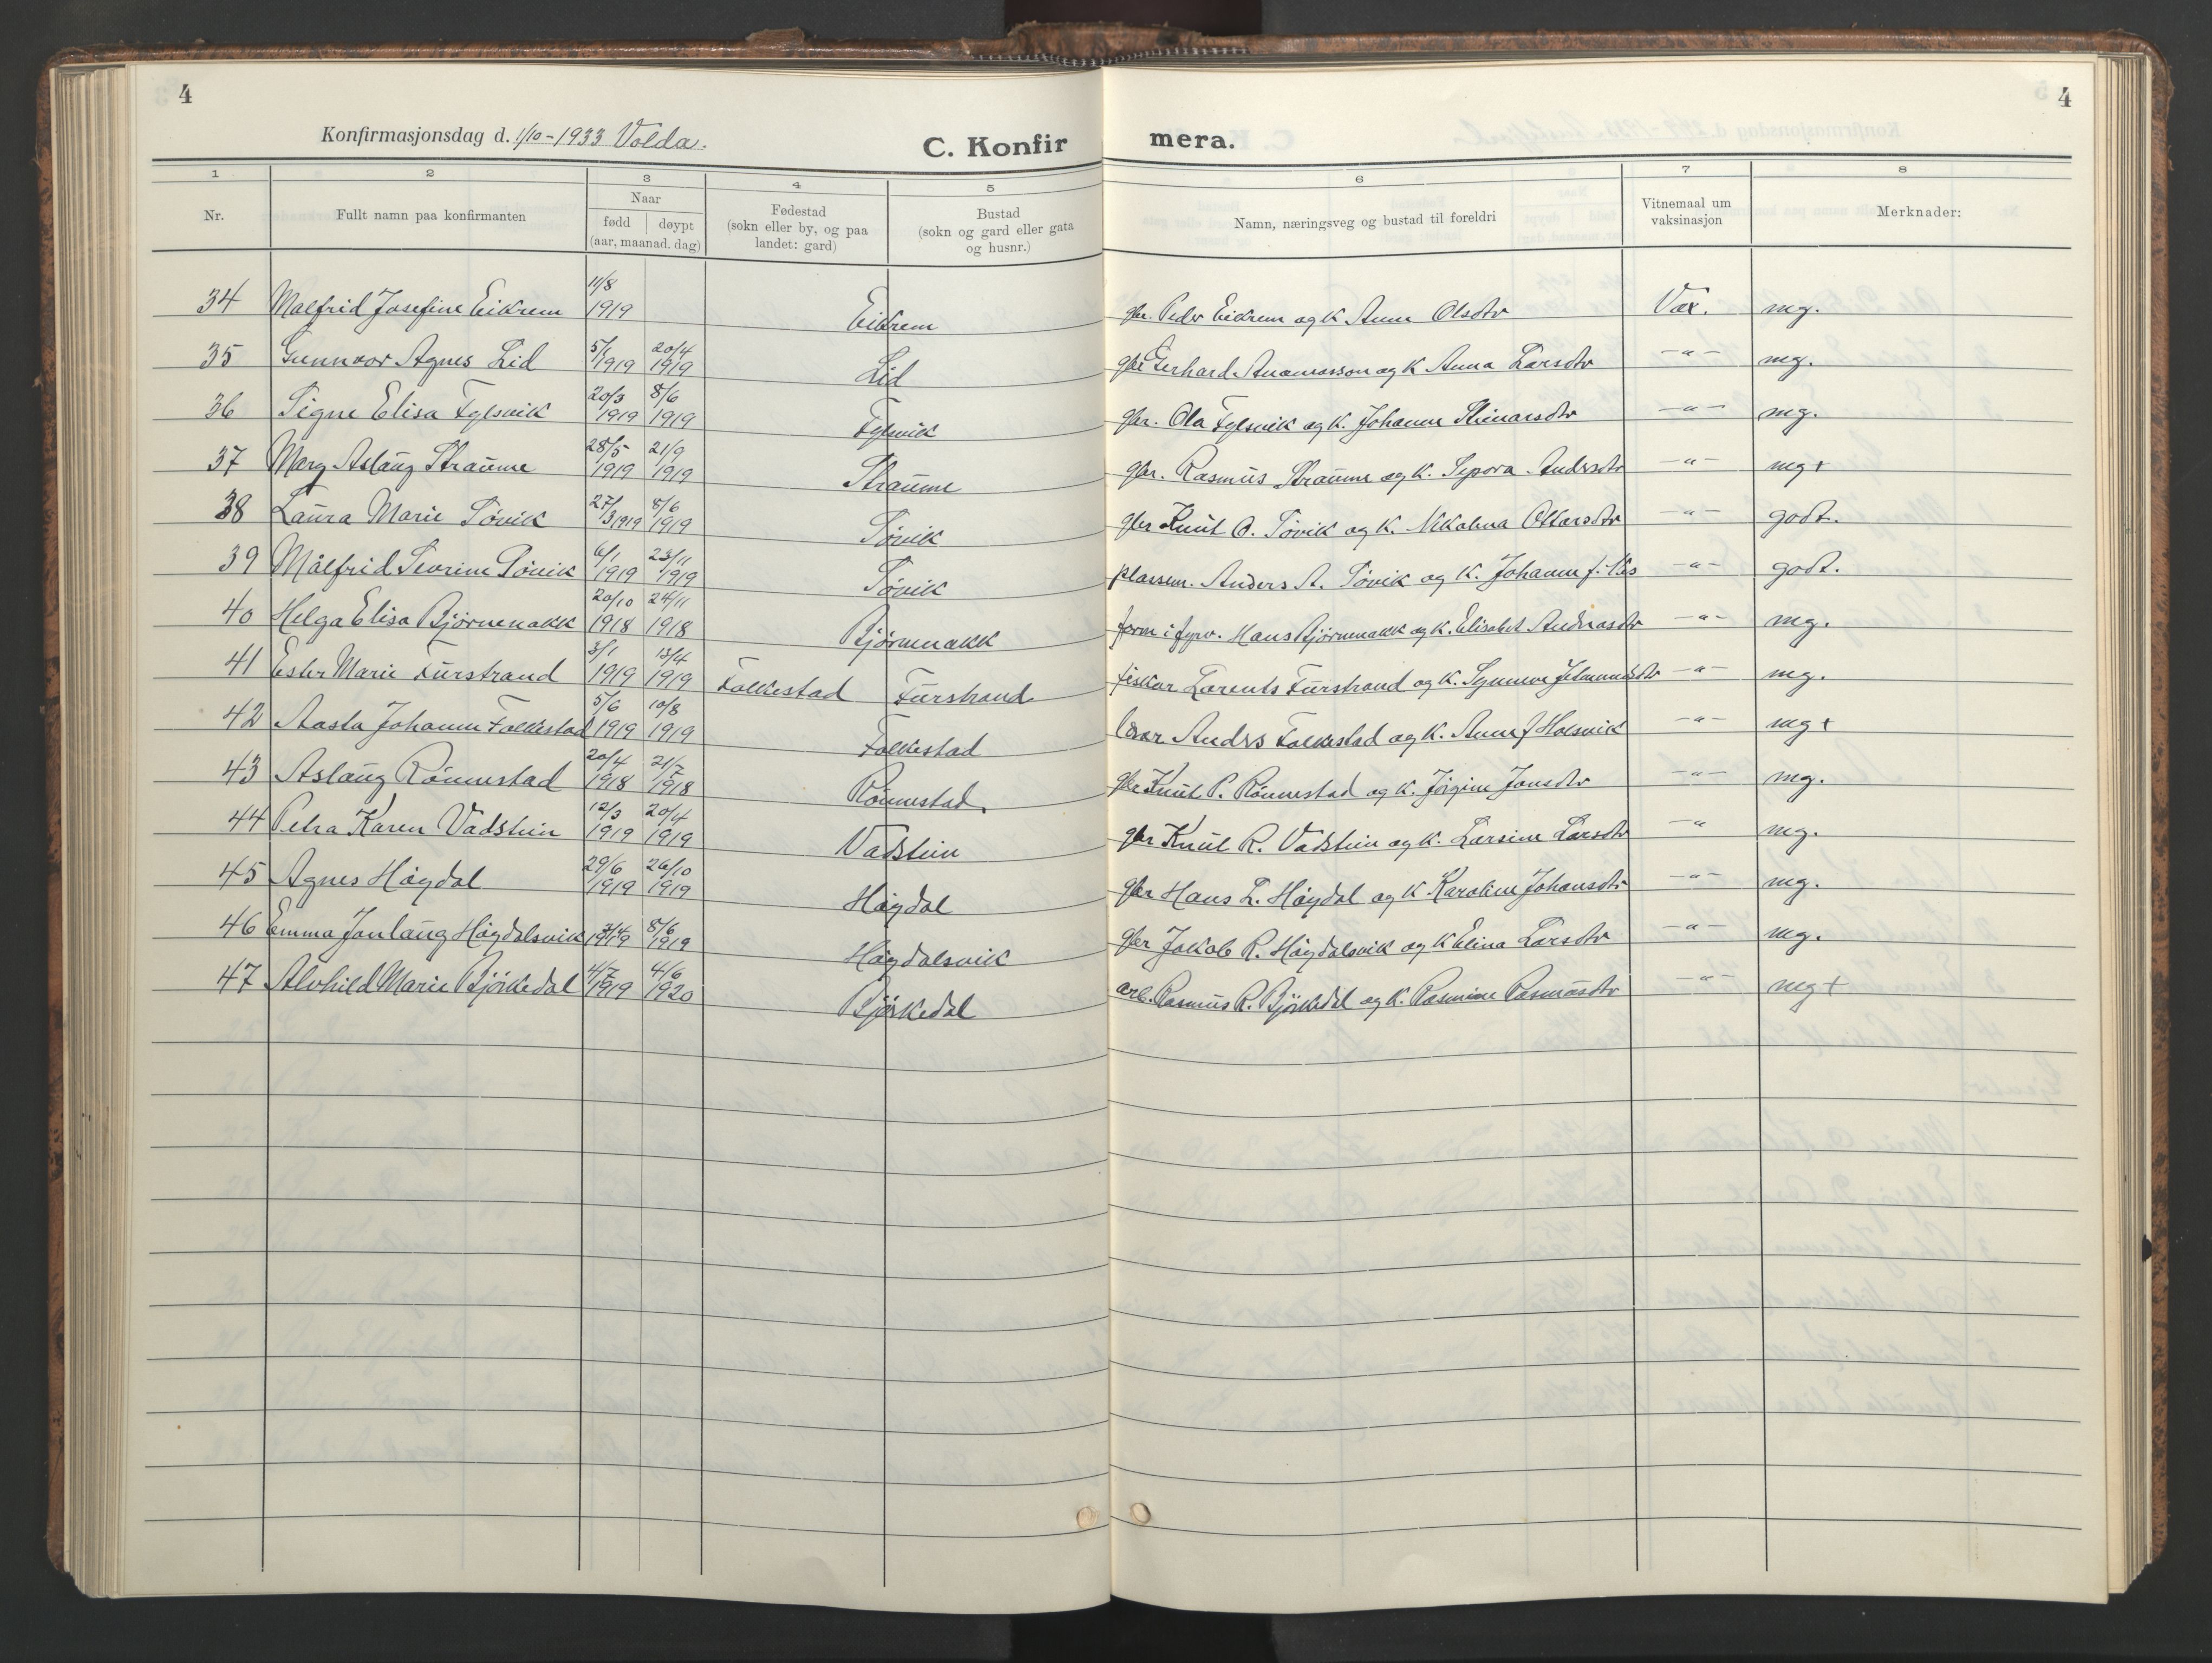 4
4
Konfirmasjonsdag d. 1/10-1933 Volda.
C. Konfirmera.
1 2 3 4 5 6 7 8
Nr. Fullt namn paa konfirmanten Naar fødd døypt (aar, maanad. dag) Fødestad (sokn eller by, og paa landet: gard) Bustad (sokn og gard eller gata og husnr.) Namn, næringsveg og bustad til foreldri Vitnemaal um vaksinasjon Merknader:
34 Malfrid Josefine Eikrem 11/8 1919 Eikrem gbr. Peder Eikrem og K Anne Olsdtr Vax. mg.
35 Gunnvor Agnes Lid 5/1 1919 20/4 1919 Lid gbr Gerhard Ananiasson og K Anna Larsdtr -"- mg.
36 Signe Elisa Fylsvik 20/3 1919 8/6 1919 Fylsvik gbr. Ola Fylsvik og K. Johanne Steinarsdtr -"- mg.
37 Mary Aslaug Straume 28/5 1919 21/9 1919 Straume gbr. Rasmus Straume og K. Sepora Andrsdtr -"- mg+
38 Laura Marie Søvik 27/3 1919 8/6 1919 Søvik gbr Knut O. Søvik og K. Nikolina Ottarsdtr -"- godt.
39 Målfrid Sevrine Søvik 6/1 1919 23/11 1919 Søvik plassem. Anders A. Søvik og K. Johanne f. -"- godt.
40 Helga Elisa Bjørnenakk 20/10 1918 24/11 1918 Bjørnenakk form i fyrv. Hans Bjørnenakk og K. Elisabet Andreasdtr -"- mg.
41 Ester Marie Furstrand 3/1 1919 13/4 1919 Folkestad Furstrand fiskar Lorents Furstrand og K. Synneve -"- mg.
42 Aasta Johanne Folkestad 5/6 1919 10/8 1919 Folkestad lærar Andrs Folkestad og K. Anne f Holsvik -"- mg+
43 Aslaug Rønnestad 20/4 1918 21/7 1918 Rønnestad. gbr Knut P. Rønnestad og K. Jørgine Jonsdtr -"- mg.
44 Petra Karen Vadstein 12/3 1919 20/4 1919 Vadstein gbr Knut R. Vadstein og K. Larsine Larsdtr -"- mg.
45 Agnes Høydal 29/6 1919 26/10 1919 Høydal gbr Hans L. Høydal og K Karoline Johansdtr -"- mg.
46 Emma Jonlaug Høydalsvik 1919 8/6 1919 Høydalsvik gbr Jakob R. Høydalsvik og K Elina Larsdtr -"- mg.
47 Alvhild Marie Bjørkedal 4/7 1919 4/6 1920 Bjørkedal arb. Rasmus R. Bjørkedal og K. Rasmine Rasmusdtr -"- mg+